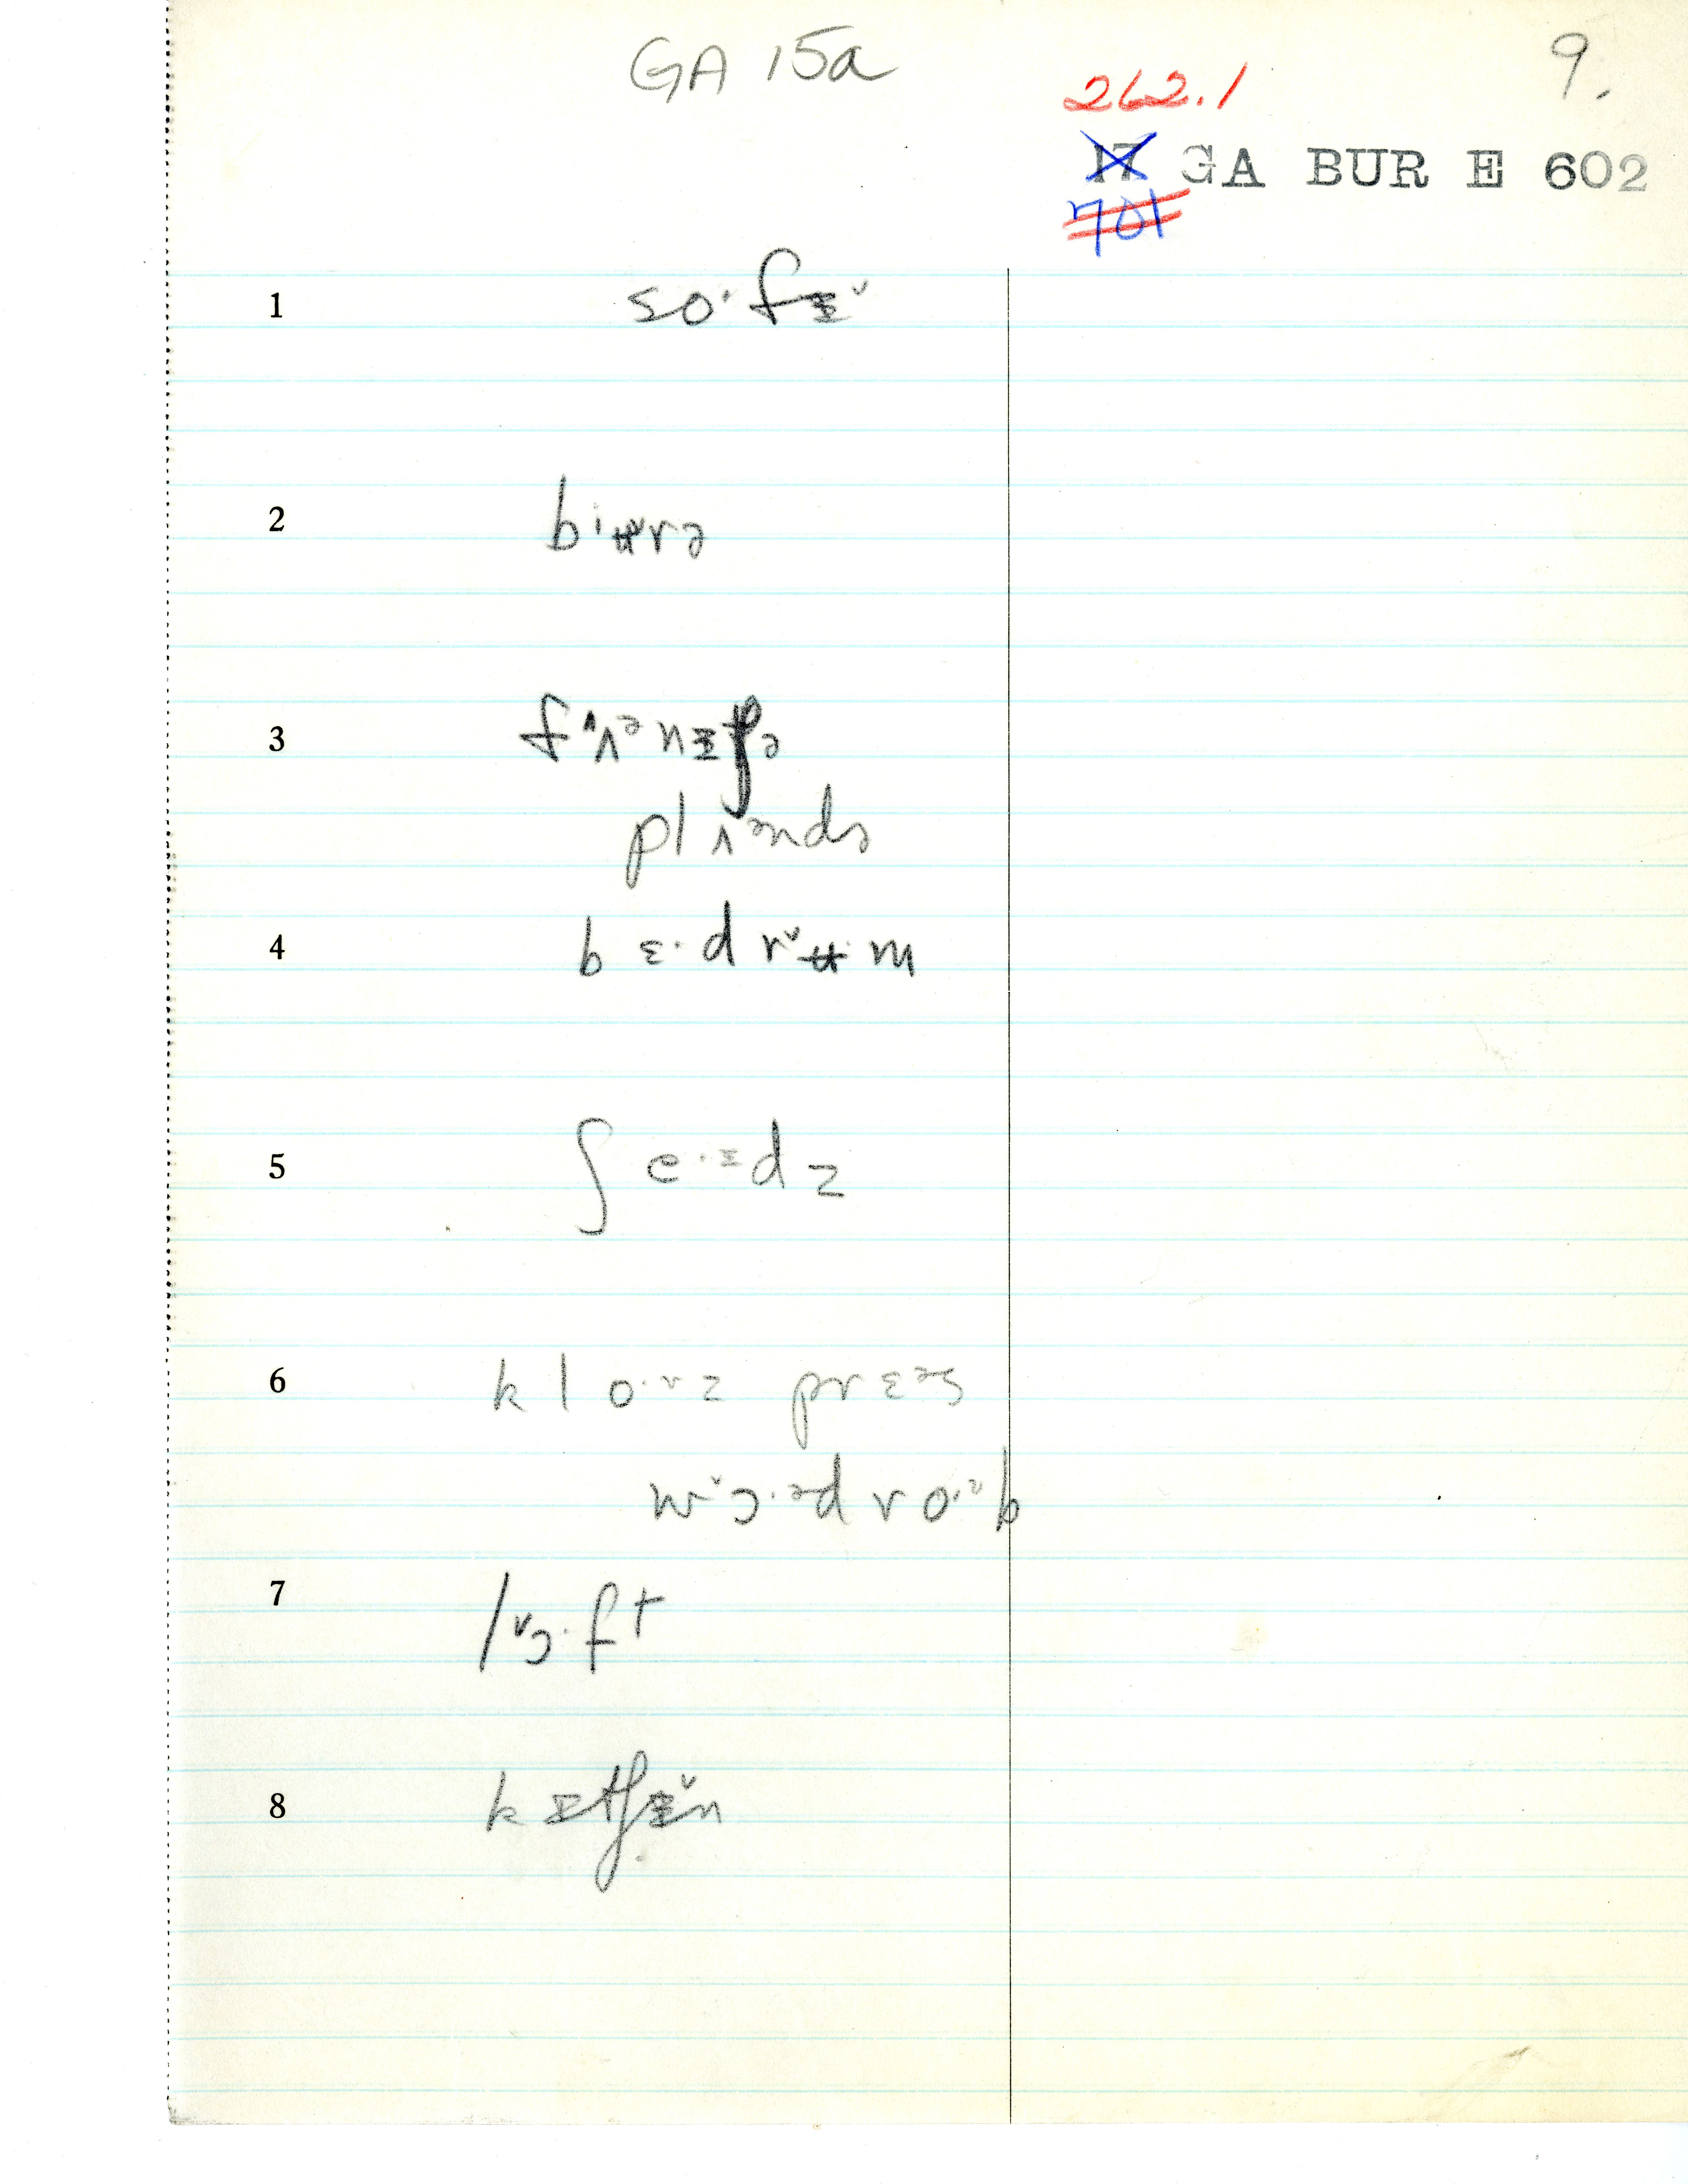 GA 15a
9.
262.1
17 GA BUR E 602
701
1 so·fɪ̵ˇ
2 bjʉ̌rə
3 fʌ^ənɪ̵tʃə
plʌəndə
4 bɛ·drˇʉ·m
5 ʃe·ɪ̵dz
6 klo·ᵛz prɛəs
wˇɔ·ədro·ᵊb
7 lˇɔ·ft
8 kɪtʃɪ̵ˇn